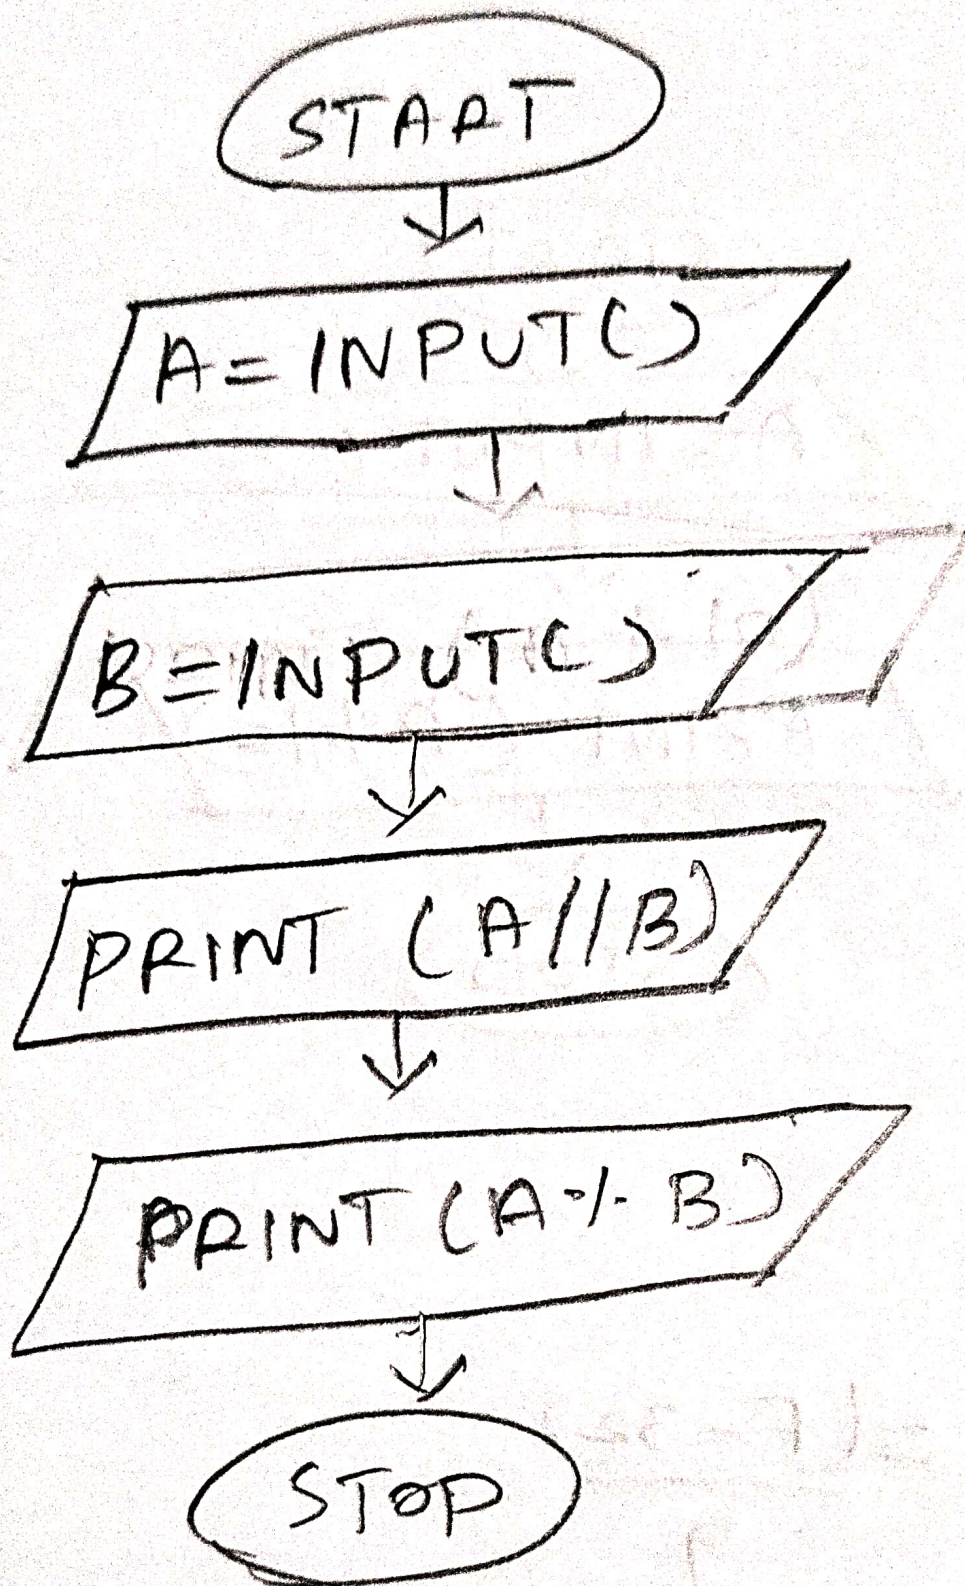 START
A=INPUT()
B=INPUT()
PRINT (A//B)
PRINT (A % B)
STOP